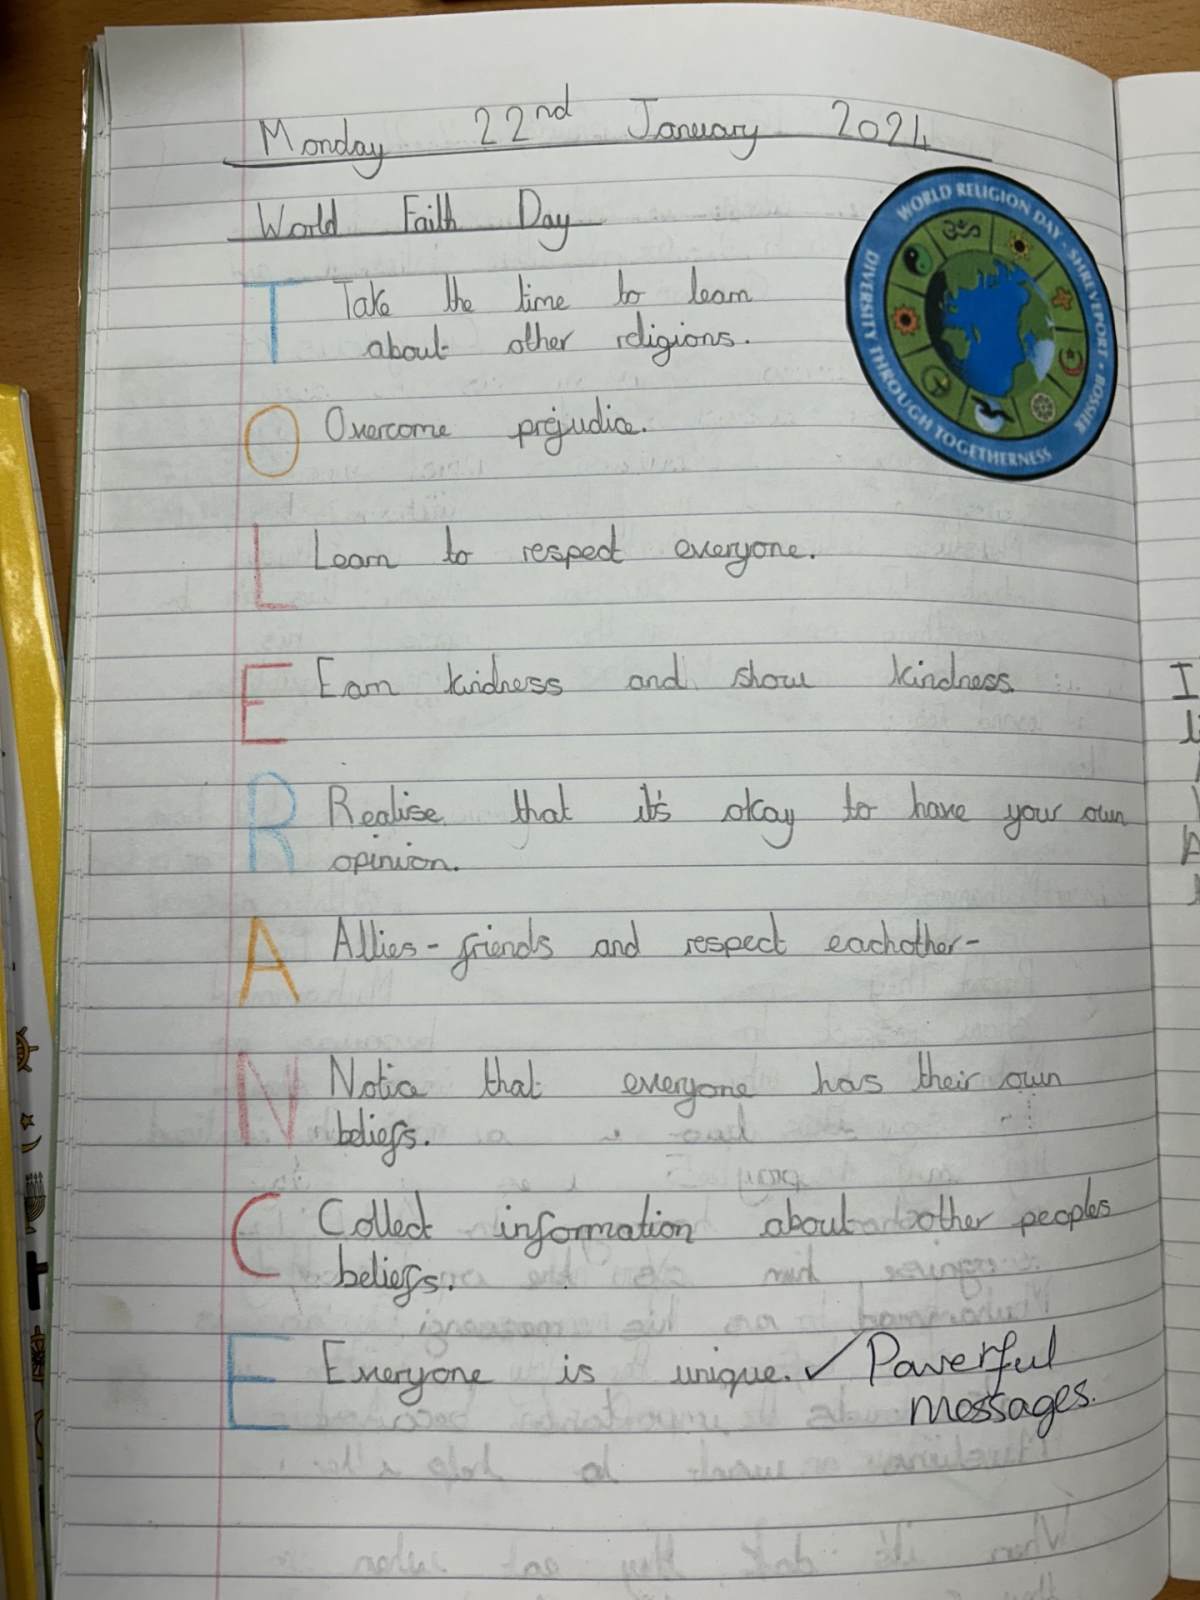 Monday 22nd January 2024
World Faith Day
WORLD RELIGION DAY - SHREVEPORT • BOSSIER
DIVERSITY THROUGH TOGETHERNESS
T Take the time to learn
about other religions.
O Overcome prejudice.
L Learn to respect everyone.
E Earn kindness and show kindness
R Realise that it's okay to have your own
opinion.
A Allies - friends and respect eachother -
N Notice that everyone has their own
beliefs.
C Collect information about other peoples
beliefs.
E Everyone is unique. ✓ Powerful
messages.